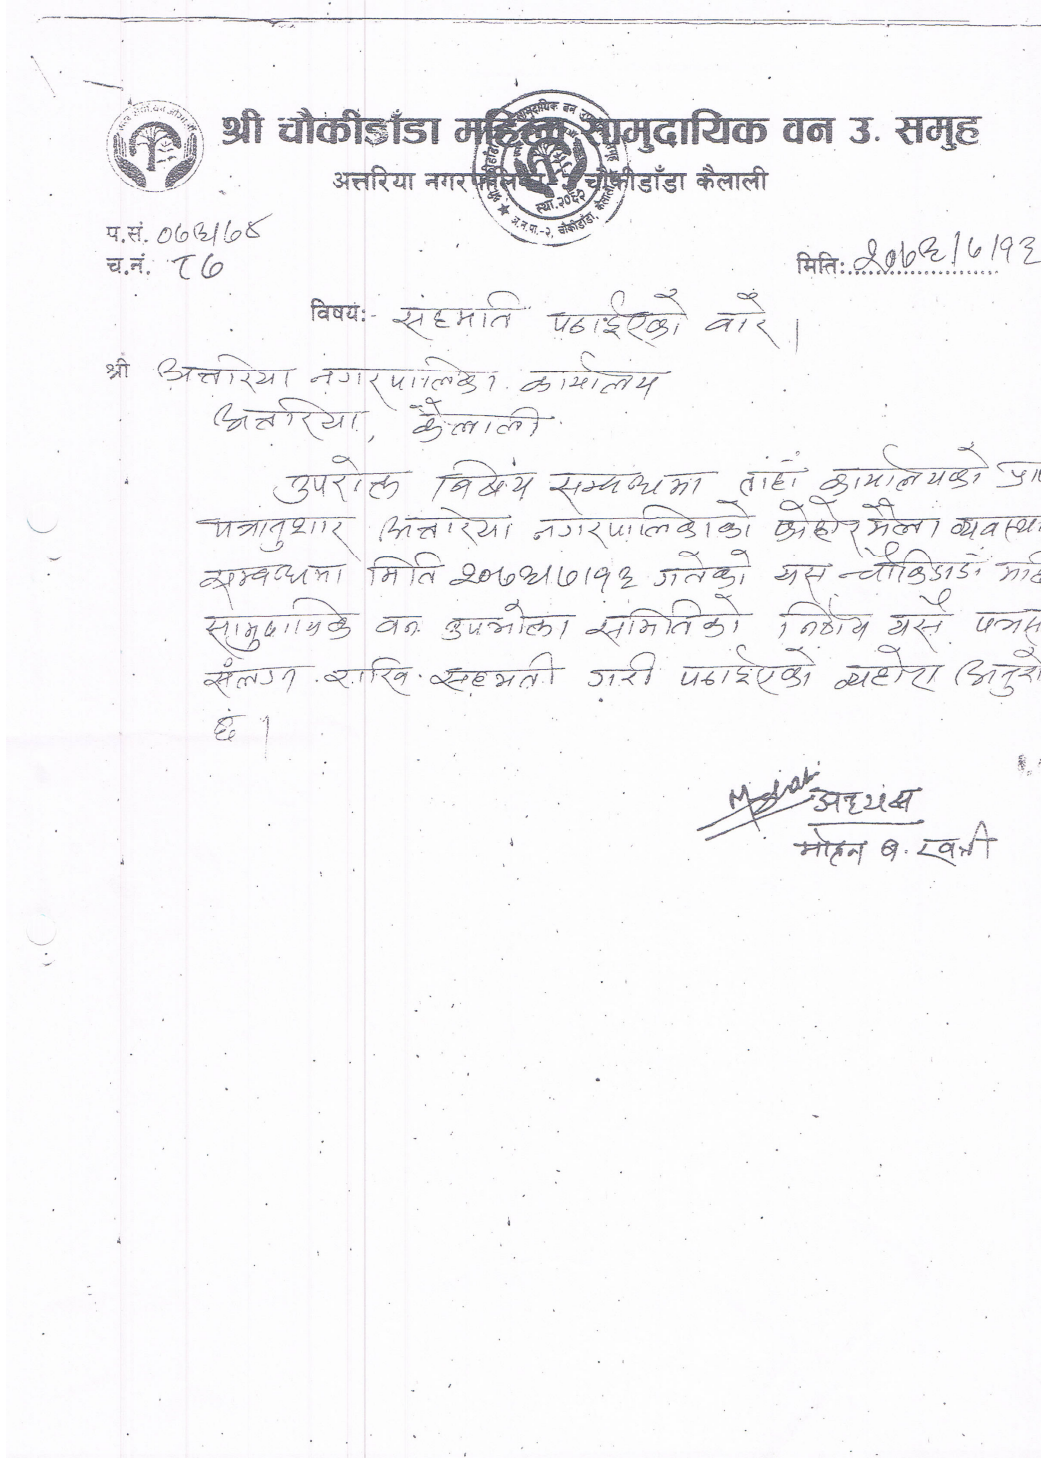 श्री चौकीडाँडा महिला सामुदायिक वन उ. समुह
अत्तरिया नगरपालिका- चौकीडाँडा कैलाली
स्था.२०६२
अ.न.पा.-२, चौकीडाँडा, कैलाली
प.सं. ०७३/७४
च.नं. ८७
मितिः २०७३/७/१३
विषयः- संहमति पठाईएको वारे।
श्री अत्तरिया नगरपालिका कार्यालय
अत्तरिया, कैलाली
उपरोक्त विषय सम्वन्धमा तांहां कार्यालयको
पत्रानुशार अत्तरिया नगरपालिकाको फोहोरमैला व्यवस्था
सम्वन्धमा मिति २०७३/७/१३ गतेको यस चौकिडाडाँ
सामुदायिक वन उपभोक्ता समितिको निर्णय यसै
संलग्न राखि सहमती गरी पठाईएको व्यहोरा
छ।
अध्यक्ष
मोहन ब. खत्री